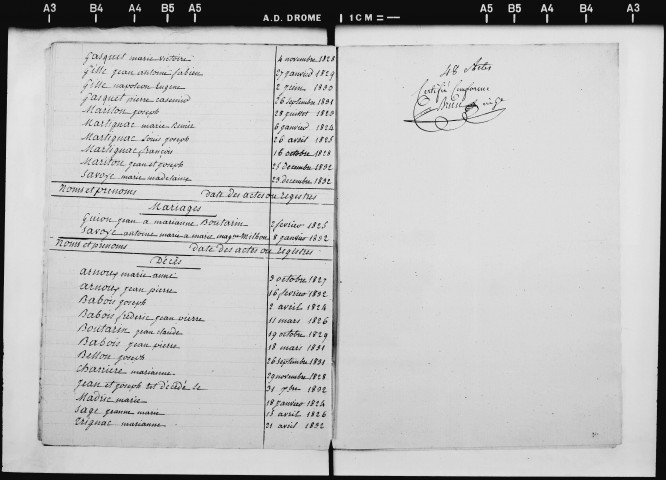 A3 B4 A4 B5 A5 A.D. DROME 1CM = A5 B5 A4 B4 A3
Gasquet marie victoire 4 novembre 1828
Gille jean antoine fabien 27 janvier 1829
Gille napoleon Eugene 2 juin 1830
Gasquet pierre casimir 26 septembre 1831
Mariton joseph 28 juillet 1823
Martignac marie 6 janvier 1824
Martignac Louis joseph 26 avril 1825
Martignac françois 16 octobre 1828
Mariton jean et joseph 25 decembre 1832
Savoye marie madelaine 23 decembre 1832
Noms et prenoms Date des actes ou registres
Mariages
Guion jean a marianne Boutarin 2 fevrier 1825
Savoye antoine marie a marie 8 janvier 1832
Noms et prenoms Date des actes ou registres
Décès
Arnoux marie anne 3 octobre 1827
Arnoux jean pierre 16 fevrier 1832
Babois joseph 2 avril 1824
Babois frederic jean pierre 11 mars 1826
Boutarin jean claude 19 octobre 1829
Babois jean pierre 18 mars 1831
Bellon joseph 26 septembre 1831
Charriere marianne 29 novembre 1828
jean et joseph est décédé le 31 xbre 1832
Madric marie 18 janvier 1824
Sage jeanne marie 15 avril 1826
Trignac marianne 21 avril 1832
48 Actes
Certifié Conforme